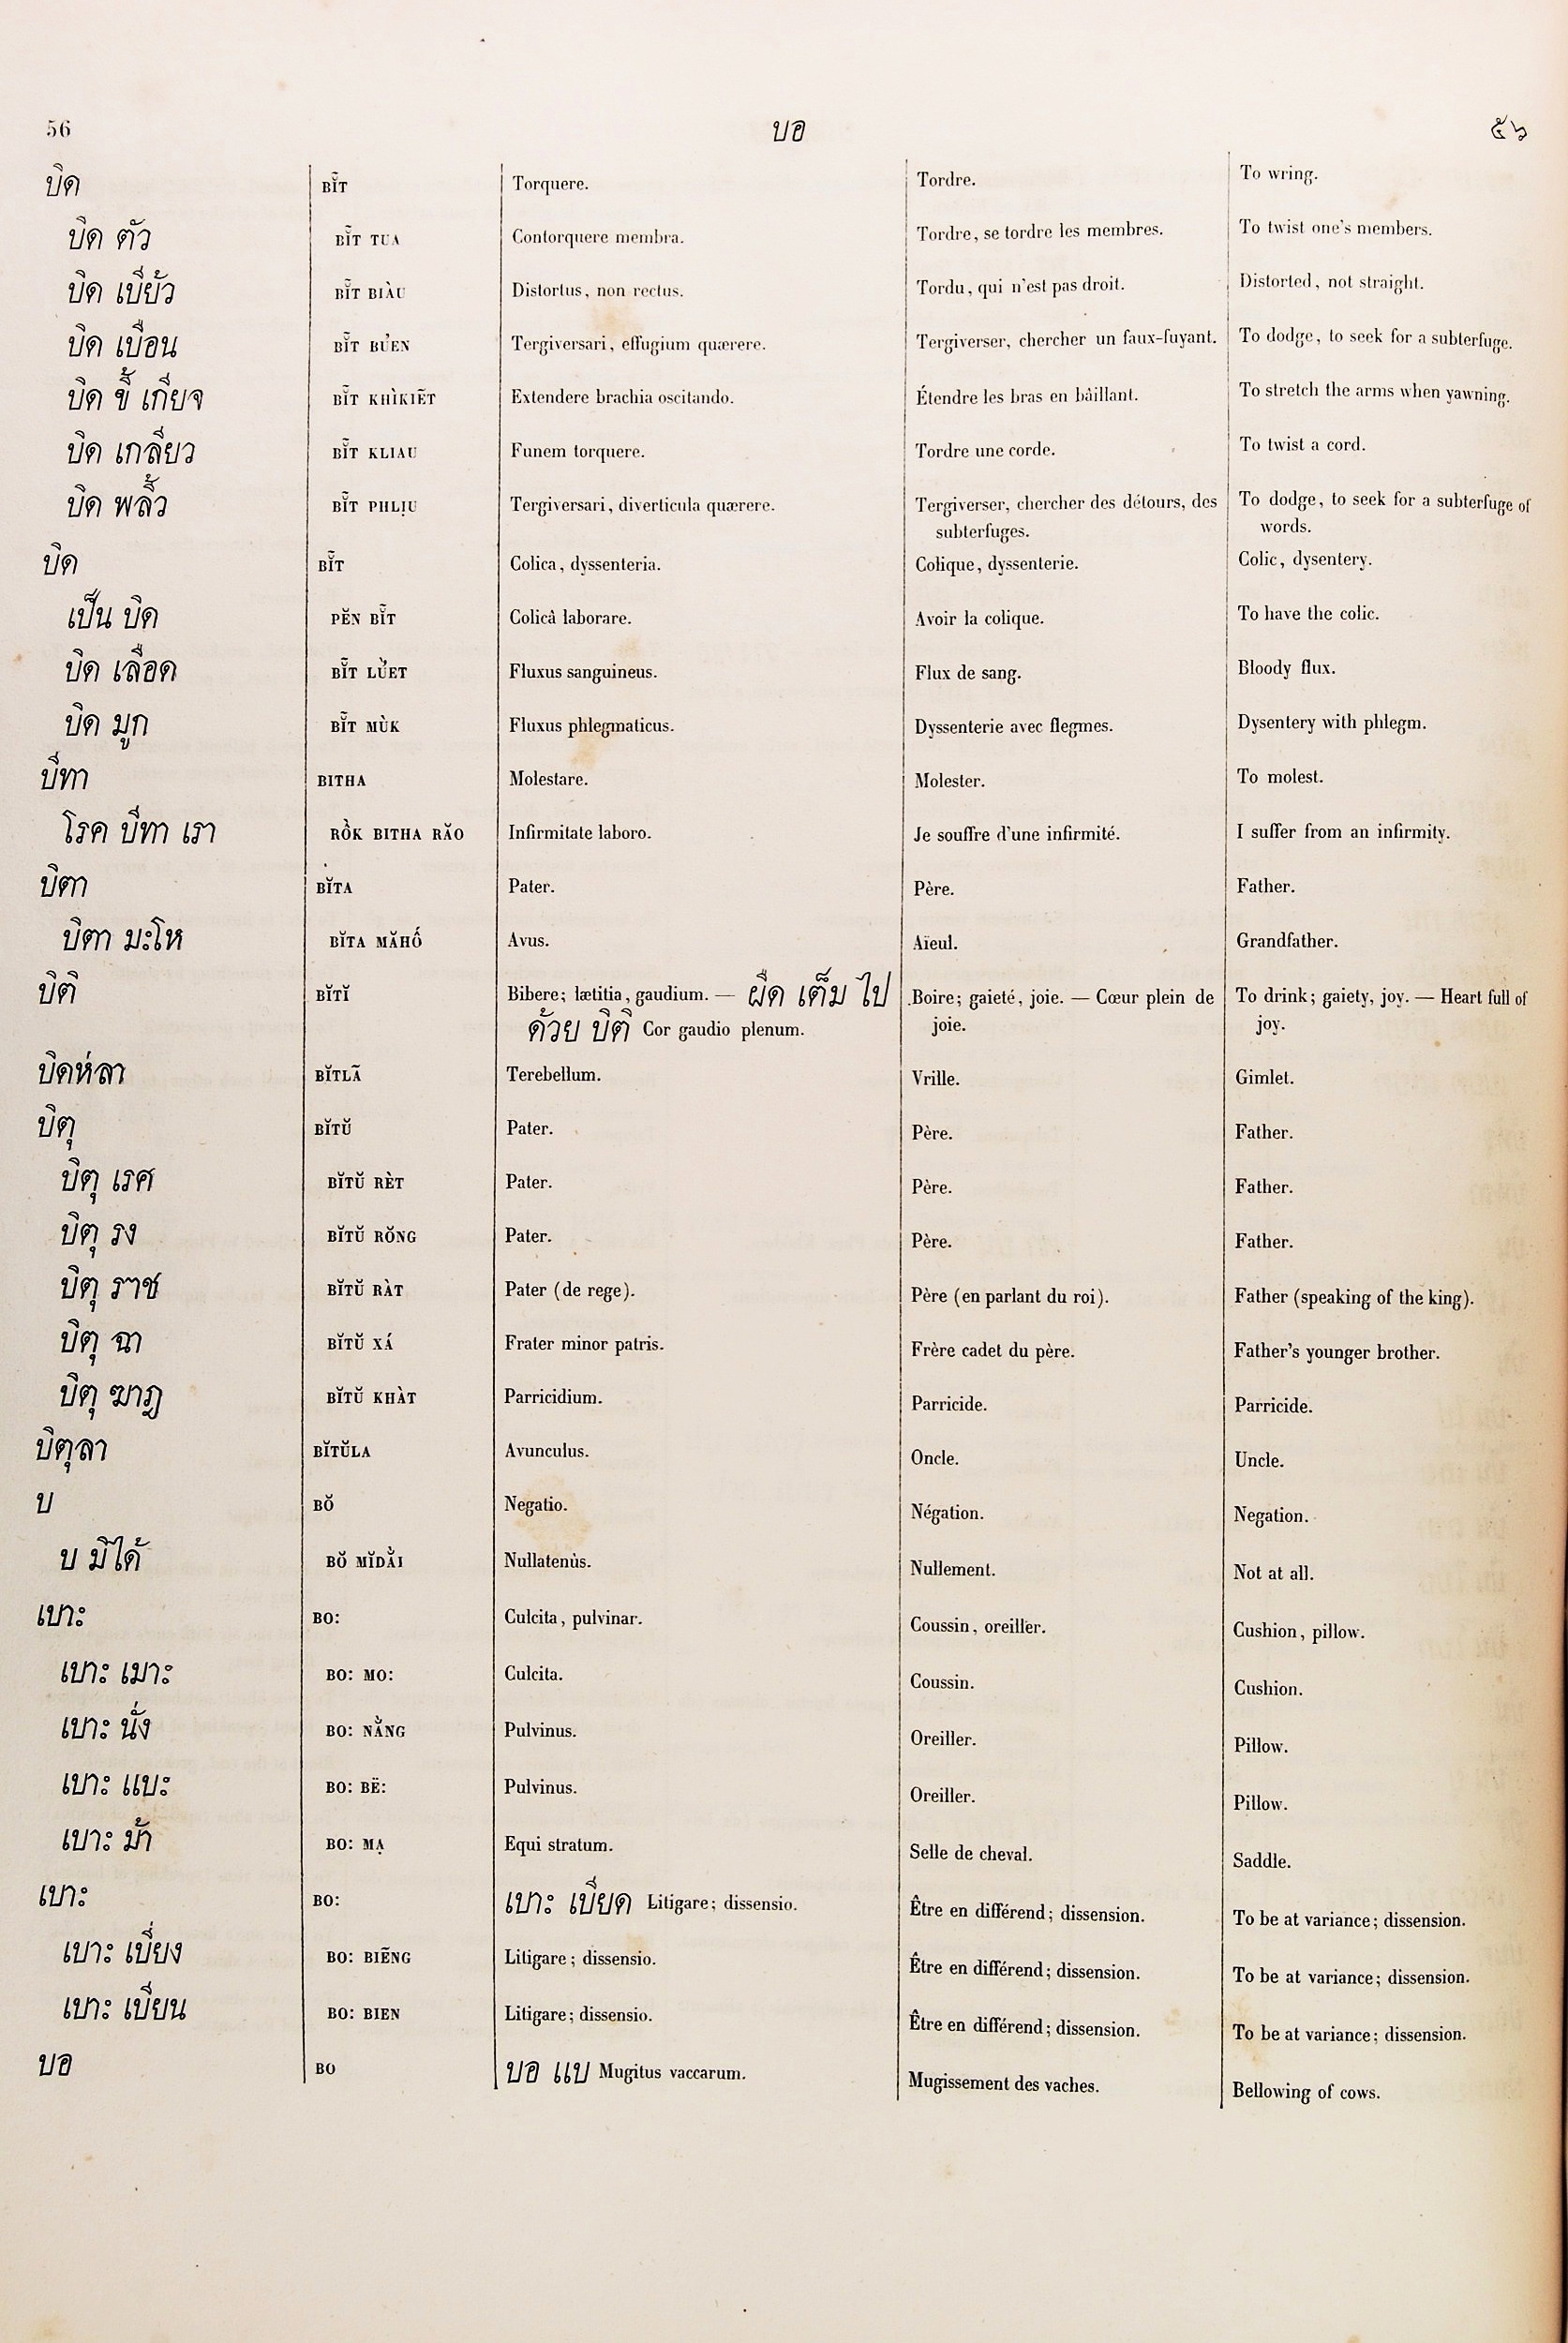 56 บอ ๕๖
บิด BĬT Torquere. Tordre. To wring.
บิด ตัว BĬT TUA Contorquere membra. Tordre, se tordre les membres. To twist one's members.
บิด เบี้ยว BĬT BIÀU Distortus, non rectus. Tordu, qui n'est pas droit. Distorted, not straight.
บิด เบือน BĬT BU'EN Tergiversari, effugium quærere. Tergiverser, chercher un faux-fuyant. To dodge, to seek for a subterfuge.
บิด ขี้ เกียจ BĬT KHÌKIẼT Extendere brachia oscitando. Étendre les bras en bâillant. To stretch the arms when yawning.
บิด เกลียว BĬT KLIAU Funem torquere. Tordre une corde. To twist a cord.
บิด พลิ้ว BĬT PHLỊU Tergiversari, diverticula quærere. Tergiverser, chercher des détours, des To dodge, to seek for a subterfuge of
subterfuges. words.
บิด BĬT Colica, dyssenteria. Colique, dyssenterie. Colic, dysentery.
เป็น บิด PĔN BĬT Colicâ laborare. Avoir la colique. To have the colic.
บิด เลือด BĬT LU'ET Fluxus sanguineus. Flux de sang. Bloody flux.
บิด มูก BĬT MÙK Fluxus phlegmaticus. Dyssenterie avec flegmes. Dysentery with phlegm.
บีทา BITHA Molestare. Molester. To molest.
โรค บีทา เรา RỒK BITHA RĂO Infirmitate laboro. Je souffre d'une infirmité. I suffer from an infirmity.
บิตา BĬTA Pater. Père. Father.
บิตา มะโห BĬTA MĂHỐ Avus. Aïeul. Grandfather.
บิติ BĬTĬ Bibere; lætitia, gaudium. — ผืด เต็ม ไป Boire; gaieté, joie. — Cœur plein de To drink; gaiety, joy. — Heart full of
ด้วย บิติ Cor gaudio plenum. joie. joy.
บิดห่ลา BĬTLÃ Terebellum. Vrille. Gimlet.
บิตุ BĬTŬ Pater. Père. Father.
บิตุ เรศ BĬTŬ RÈT Pater. Père. Father.
บิตุ รง BĬTŬ RŎNG Pater. Père. Father.
บิตุ ราช BĬTŬ RÀT Pater (de rege). Père (en parlant du roi). Father (speaking of the king).
บิตุ ฉา BĬTŬ XÁ Frater minor patris. Frère cadet du père. Father's younger brother.
บิตุ ฆาฎ BĬTŬ KHÀT Parricidium. Parricide. Parricide.
บิตุลา BĬTŬLA Avunculus. Oncle. Uncle.
บ BŎ Negatio. Négation. Negation.
บ มิได้ BŎ MĬDẰI Nullatenùs. Nullement. Not at all.
เบาะ BO: Culcita, pulvinar. Coussin, oreiller. Cushion, pillow.
เบาะ เมาะ BO: MO: Culcita. Coussin. Cushion.
เบาะ นั่ง BO: NẰNG Pulvinus. Oreiller. Pillow.
เบาะ แบะ BO: BË: Pulvinus. Oreiller. Pillow.
เบาะ ม้า BO: MẠ Equi stratum. Selle de cheval. Saddle.
เบาะ BO: เบาะ เบียด Litigare; dissensio. Être en différend; dissension. To be at variance; dissension.
เบาะ เบี่ยง BO: BIẼNG Litigare; dissensio. Être en différend; dissension. To be at variance; dissension.
เบาะ เบียน BO: BIEN Litigare; dissensio. Être en différend; dissension. To be at variance; dissension.
บอ BO บอ แบ Mugitus vaccarum. Mugissement des vaches. Bellowing of cows.